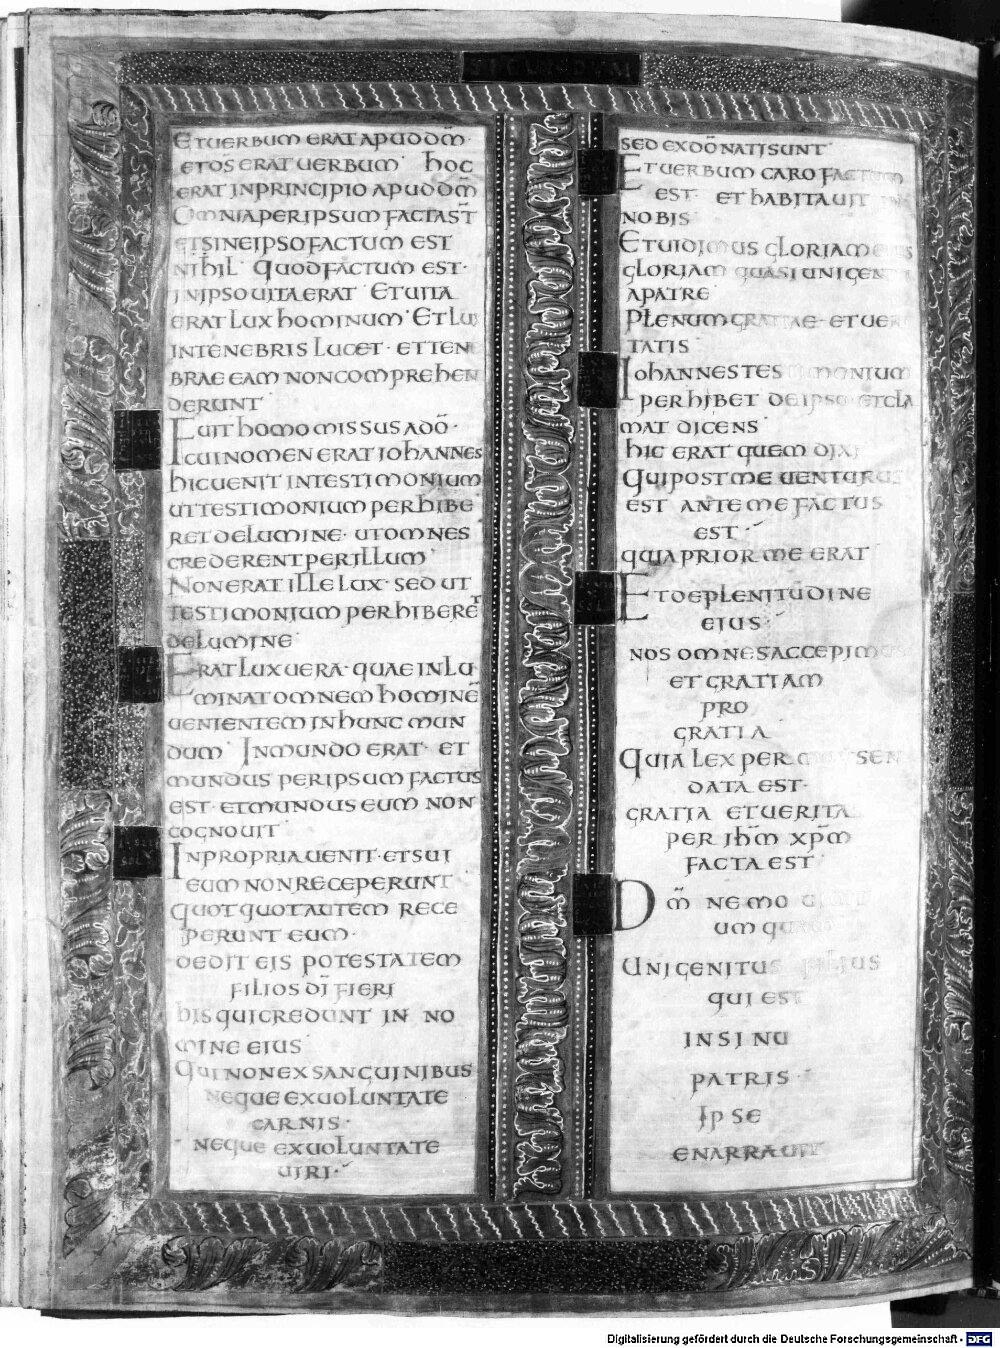 SECUNDUM
ETUERBUM ERAT APUD DM̄·
ETDS̄ ERAT UERBUM· HOC
ERAT INPRINCIPIO APUD DM̄
OMNIA PER IPSUM FACTA ST̄
ET SINE IPSO FACTUM EST
NIHIL· QUOD FACTUM EST·
IN IPSO UITA ERAT· ET UITA
ERAT LUX HOMINUM· ET LU
IN TENEBRIS LUCET· ET TENE
BRAE EAM NON COMPREHEN
DERUNT·
FUIT HOMO MISSUS A DŌ·
CUI NOMEN ERAT IOHANNES
HIC UENIT IN TESTIMONIUM
UT TESTIMONIUM PERHIBE
RET DE LUMINE· UT OMNES
CREDERENT PER ILLUM·
NON ERAT ILLE LUX· SED UT
TESTIMONIUM PERHIBERET
DE LUMINE·
ERAT LUX UERA· QUAE INLU
MINAT OMNEM HOMINĒ
UENIENTEM IN HUNC MUN
DUM· IN MUNDO ERAT· ET
MUNDUS PER IPSUM FACTUS
EST· ET MUNDUS EUM NON
COGNOUIT·
IN PROPRIA UENIT· ET SUI
EUM NON RECEPERUNT·
QUOTQUOT AUTEM RECE
PERUNT EUM·
DEDIT EIS POTESTATEM
FILIOS DĪ FIERI
HIS QUI CREDUNT IN NO
MINE EIUS·
QUI NON EX SANGUINIBUS
NEQUE EX UOLUNTATE
CARNIS·
NEQUE EX UOLUNTATE
UIRI·
SED EX DŌ NATI SUNT·
ET UERBUM CARO FACTUM
EST· ET HABITAUIT IN
NOBIS·
ET UIDIMUS GLORIAM EIUS
GLORIAM QUASI UNIGENI
A PATRE·
PLENUM GRATIAE· ET UERI
TATIS·
IOHANNES TESTIMONIUM
PERHIBET DE IPSO· ET CLA
MAT DICENS·
HIC ERAT QUEM DIXI
QUI POST ME UENTURUS
EST ANTE ME FACTUS
EST·
QUIA PRIOR ME ERAT·
ET DE PLENITUDINE
EIUS·
NOS OMNES ACCEPIMUS
ET GRATIAM
PRO
GRATIA·
QUIA LEX PER MOYSEN
DATA EST·
GRATIA ET UERITA
PER IHM̄ XPM̄
FACTA EST·
DM̄ NEMO UIDIT
UMQUAM
UNIGENITUS FILIUS
QUI EST
IN SINU
PATRIS·
IPSE
ENARRAUIT
Digitalisierung gefördert durch die Deutsche Forschungsgemeinschaft - DFG